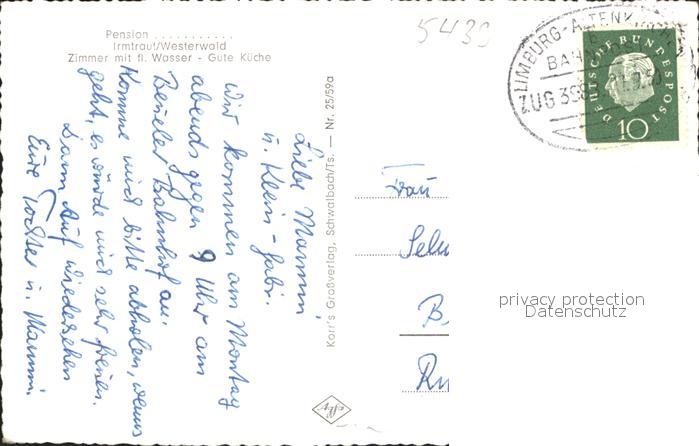 Pension . . . . . . . . . . .
Irmtraut/Westerwald
Zimmer mit fl. Wasser - Gute Küche
5430
LIMBURG-ALTENK
BAH
ZUG 398
DEUTSCHE BUNDESPOST
10
Liebe Mammi
u. Klein-Gabi.
Wir kommen am Montag
abends gegen 9 Uhr am
Beueler Bahnhof an.
Komme uns bitte abholen, wenns
geht, es würde mich sehr freuen.
Dann Auf Wiedersehen
Eure Tochter u. Mammi.
Korr's Großverlag, Schwalbach/Ts. — Nr. 25/59a
Frau
Seh
B
Ru
privacy protection
Datenschutz